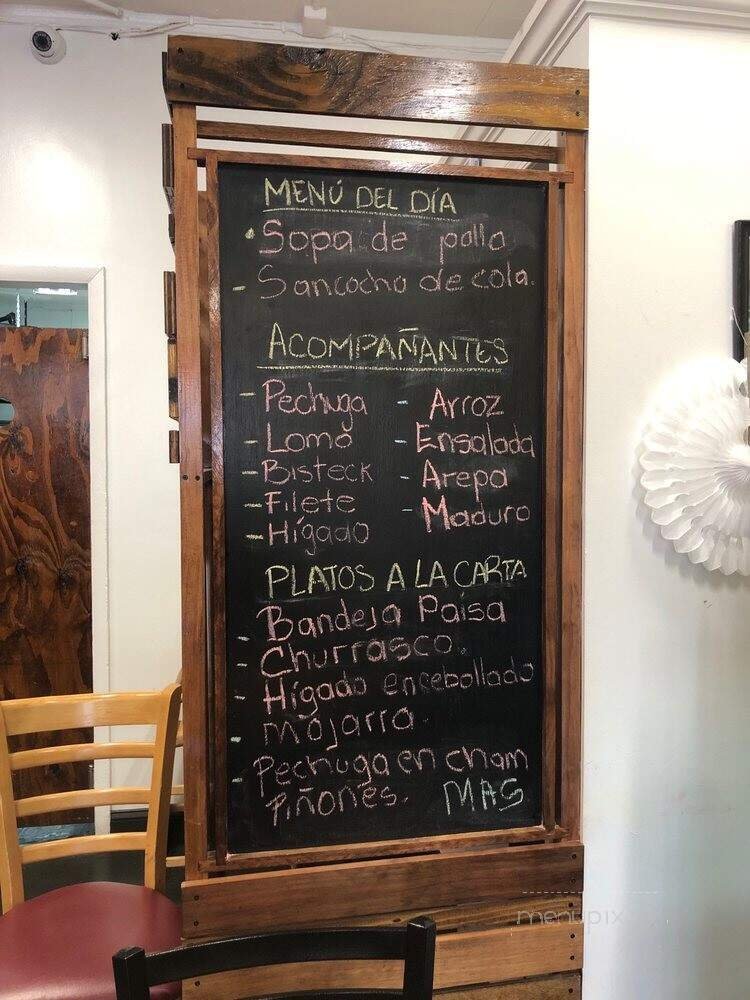 MENÚ DEL DÍA
• Sopa de pollo
- Sancocho de cola.
ACOMPAÑANTES
- Pechuga - Arroz
- Lomo - Ensalada
- Bisteck - Arepa
- Filete - Maduro
- Hígado
PLATOS A LA CARTA
- Bandeja Paisa
- Churrasco.
- Hígado encebollado
- mojarra.
- Pechuga en cham
piñones. MAS
menupix